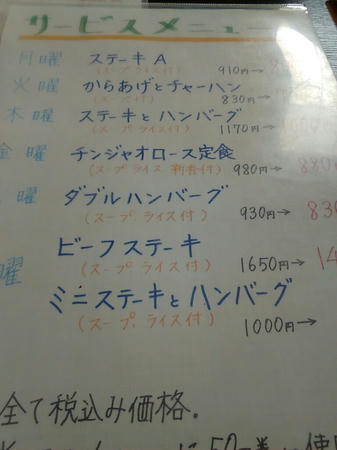 サービスメニュー
月曜 ステーキA 910円→
(スープ ライス付)
火曜 からあげとチャーハン 830円→
(スープ付)
木曜 ステーキとハンバーグ 1170円→
(スープ ライス付)
金曜 チンジャオロース定食 980円→ 880
(スープ ライス 新香付)
曜 ダブルハンバーグ 930円→ 830
(スープ ライス付)
曜 ビーフステーキ 1650円→ 14
(スープ ライス付)
ミニステーキとハンバーグ 1000円→
(スープ、ライス付)
全て税込み価格。